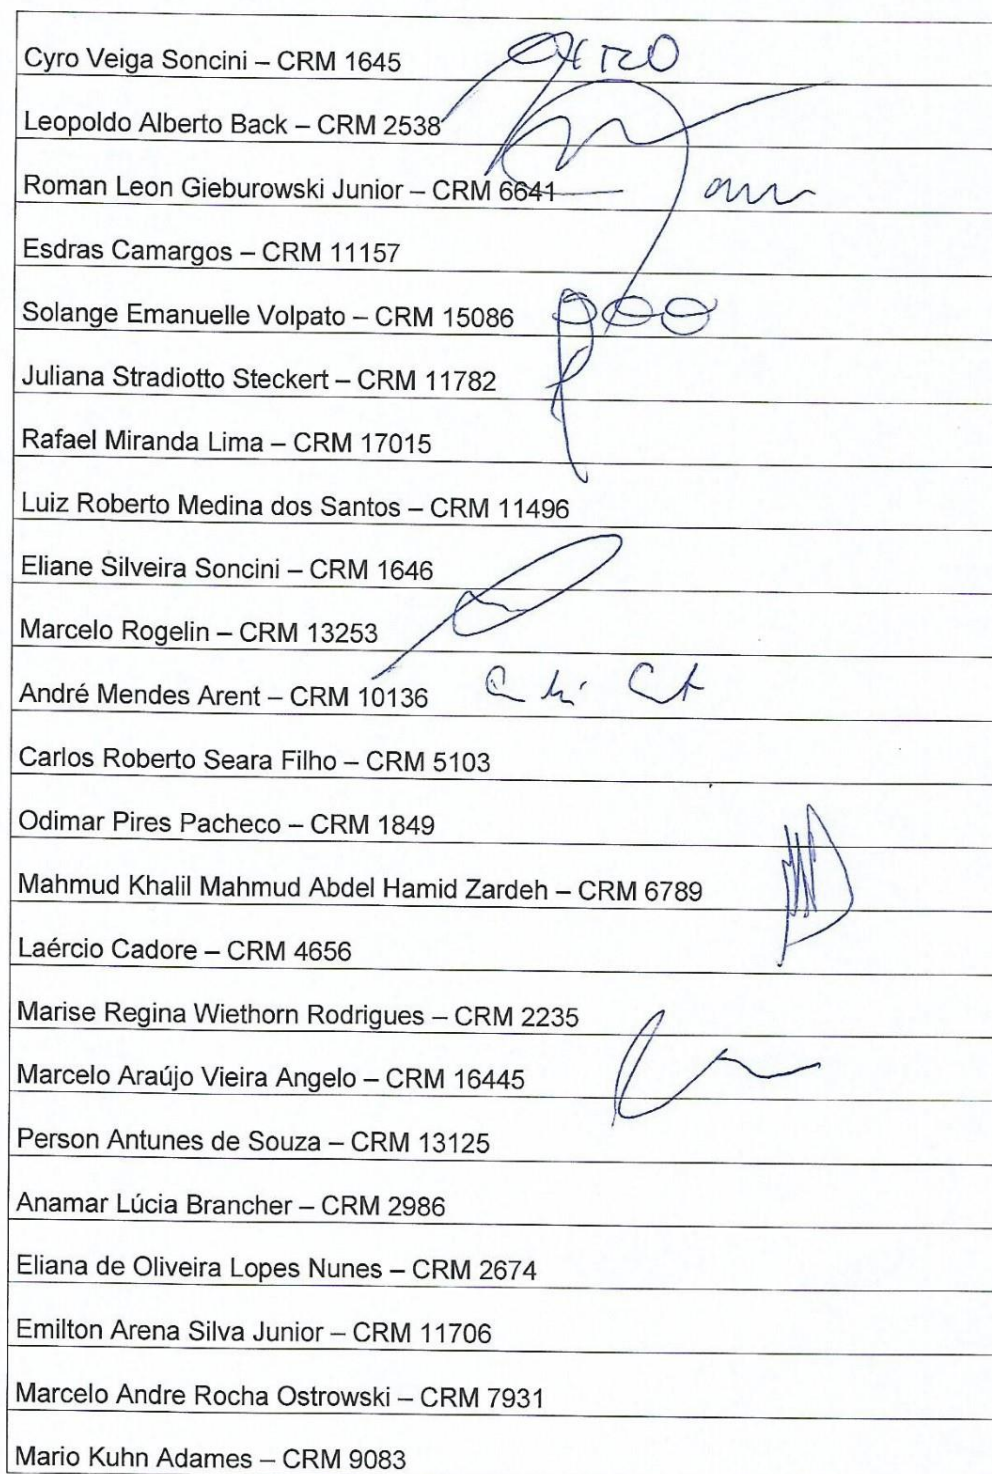 Cyro Veiga Soncini – CRM 1645
Leopoldo Alberto Back – CRM 2538
Roman Leon Gieburowski Junior – CRM 6641
Esdras Camargos – CRM 11157
Solange Emanuelle Volpato – CRM 15086
Juliana Stradiotto Steckert – CRM 11782
Rafael Miranda Lima – CRM 17015
Luiz Roberto Medina dos Santos – CRM 11496
Eliane Silveira Soncini – CRM 1646
Marcelo Rogelin – CRM 13253
André Mendes Arent – CRM 10136
Carlos Roberto Seara Filho – CRM 5103
Odimar Pires Pacheco – CRM 1849
Mahmud Khalil Mahmud Abdel Hamid Zardeh – CRM 6789
Laércio Cadore – CRM 4656
Marise Regina Wiethorn Rodrigues – CRM 2235
Marcelo Araújo Vieira Angelo – CRM 16445
Person Antunes de Souza – CRM 13125
Anamar Lúcia Brancher – CRM 2986
Eliana de Oliveira Lopes Nunes – CRM 2674
Emilton Arena Silva Junior – CRM 11706
Marcelo Andre Rocha Ostrowski – CRM 7931
Mario Kuhn Adames – CRM 9083